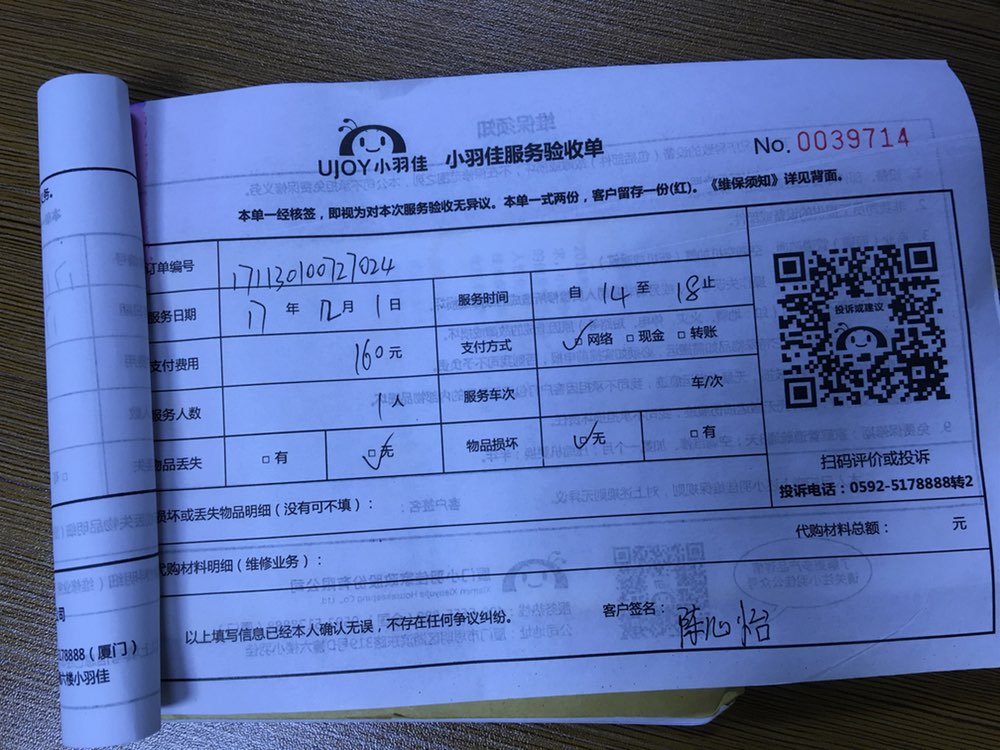 UJOY小羽佳 小羽佳服务验收单 No.0039714
本单一经核签，即视为对本次服务验收无异议。本单一式两份，客户留存一份(红)。《维保须知》详见背面。
订单编号 171130100727024
服务日期 17年12月1日 服务时间 自14至18止
支付费用 160元 支付方式 ☑网络 □现金 □转账
服务人数 1人 服务车次 车/次
物品丢失 □有 ☑无 物品损坏 ☑无 □有
投诉或建议
扫码评价或投诉
投诉电话：0592-5178888转2
损坏或丢失物品明细（没有可不填）：
代购材料总额： 元
代购材料明细（维修业务）：
以上填写信息已经本人确认无误，不存在任何争议纠纷。 客户签名：陈心怡
78888（厦门）
楼小羽佳